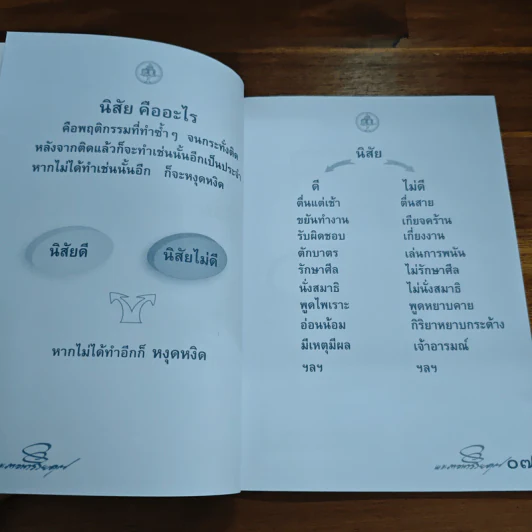 นิสัย คืออะไร
คือพฤติกรรมที่ทำซ้ำๆ จนกระทั่งติด
หลังจากติดแล้วก็จะทำเช่นนั้นอีกเป็นประจำ
หากไม่ได้ทำเช่นนั้นอีก ก็จะหงุดหงิด
นิสัยดี นิสัยไม่ดี
หากไม่ได้ทำอีกก็ หงุดหงิด
นิสัย
ดี ไม่ดี
ตื่นแต่เช้า ตื่นสาย
ขยันทำงาน เกียจคร้าน
รับผิดชอบ เกี่ยงงาน
ตักบาตร เล่นการพนัน
รักษาศีล ไม่รักษาศีล
นั่งสมาธิ ไม่นั่งสมาธิ
พูดไพเราะ พูดหยาบคาย
อ่อนน้อม กิริยาหยาบกระด้าง
มีเหตุมีผล เจ้าอารมณ์
ฯลฯ ฯลฯ
๐๗